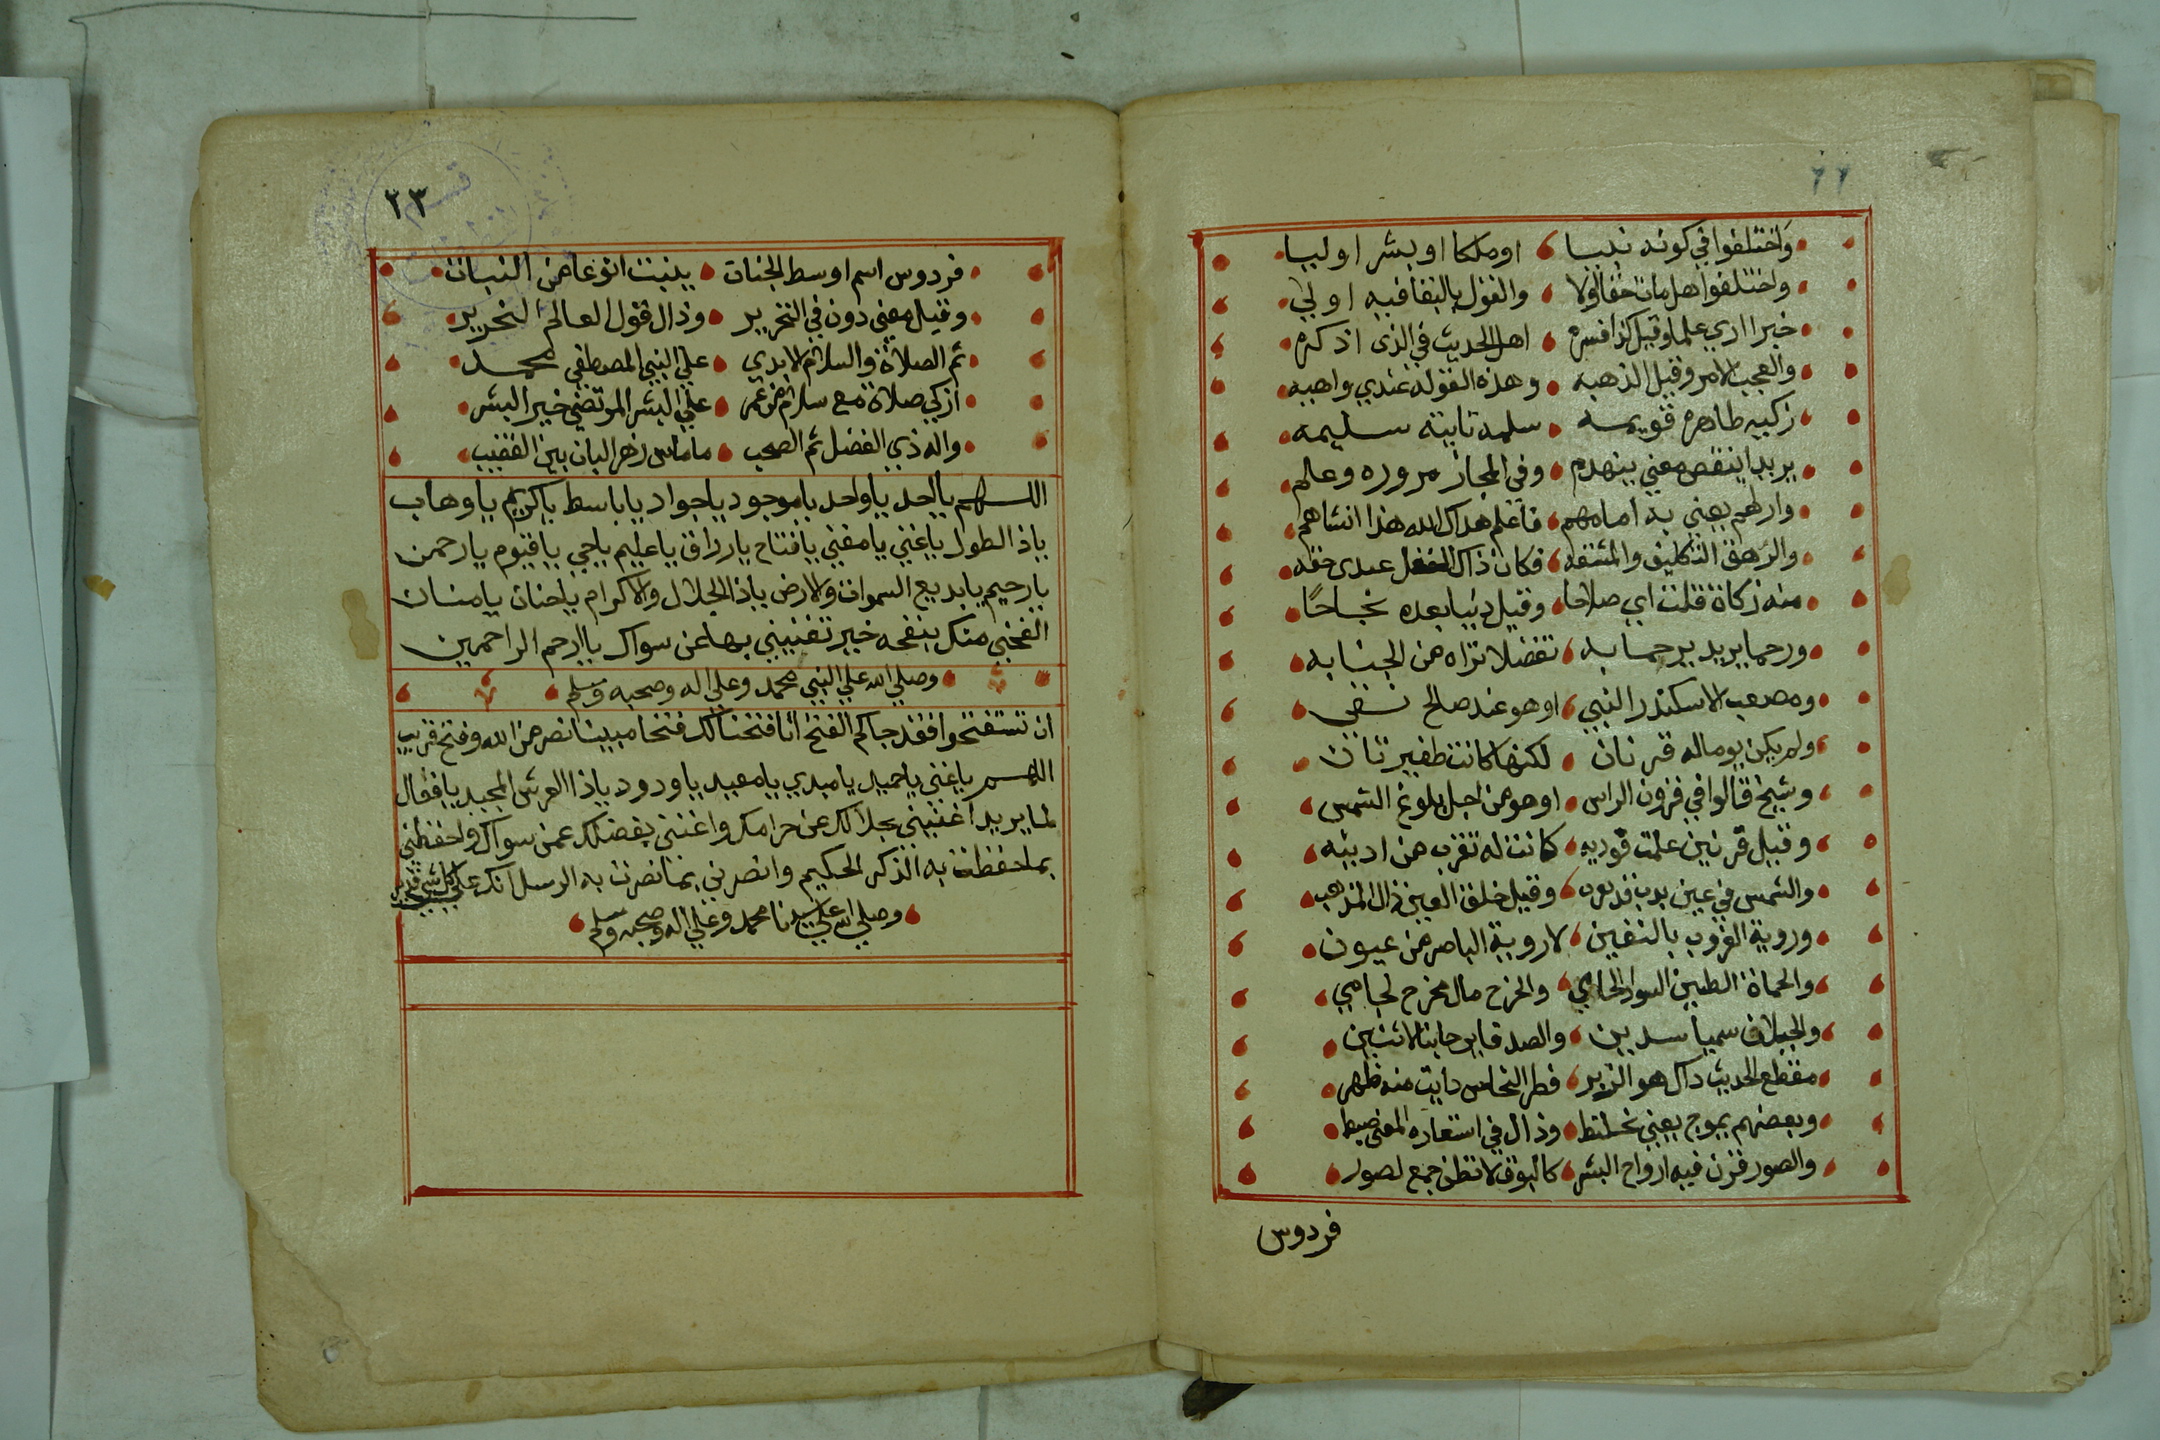 ٢٢
واختلفوا في كونه نبيا اوملكا او بشر اوليا
واختلفوا هل مات حقا اولا والقول بالبقا فيه اولي
خبرا اري علما وقيل كذا فسره اهل الحديث في الذي اذكره
والعجب الامر وقيل الذهبه وهذه القوله عندي واهبه
زكيه طاهره قويمه سلمه تابته سليمه
يريد اينقص معني ينهدم وفي المجاز مروره وعلم
وارهم يعني به امامهم فاعلم هداك الله هذا انشاهم
والرهق التكليف والمشقه فكان ذاك الفعل عبدي حقه
منه زكاة قلت اي صلاحا وقيل دنيا بعده نجاحا
ورحما يريد يرحما به تفضلا تراه من الجنابه
ومصعب الاسكندر النبي اوهو عند صالح نسفي
ولم يكن يوماله قرنان لكنها كانت ظفيرتان
وشيخ قالوا في قرون الراس اوهو من اجل بلوغ الشمس
وقيل قرنين علمت قوديه كانت له تقرب من اديئه
والشمس في عين بدت قد تعرب وقيل خلق العين ذاك المذهب
وروية الغروب باليقين لاروية الباصر من عيون
والحماة الطين السواد الحامي والخرج مال مخرج لحامي
والجبلان سميا سدين والصدفاين جابنا لاثنين
مقطع الحديد ذاك هو الزبر قطر النحاس دايت منه ظهر
وبعضهم يموج يعني تختلط وذاك في استعارة المعني ضبط
والصور قرن فيه ارواح البشر كالبوق لا تظن جمع لصور
فردوس
٢٣
فردوس اسم اوسط الجنات ينبت انوعا من النبات
وقيل معني دون في التحرير وذاك قول العالم النحرير
ثم الصلاة والسلام الابدي علي النبي المصطفي محمد
ازكي صلاة مع سلام علي البشر المرتضي خير البشر
واله ذي الفضل ثم الصحب ماماس زهر البان بين القضب
اللهم يا احد يا واحد يا موجود يا جواد يا باسط يا كريم يا وهاب
يا ذ الطول يا غني يا مغني يا فتاح يا رزاق يا عليم يا حي يا قيوم يا رحمن
يا رحيم يا بديع السموات والارض يا ذا الجلال والاكرام يا حنان يا منان
انفحني منك بنفحه خير تغنيني بها عن سواك يا ارحم الراحمين
وصلي الله علي النبي محمد وعلي اله وصحبه وسلم
ان تستفتحوا فقد جاكم الفتح انا فتحنا لك فتحا مبينا نصر من الله وفتح قريب
اللهم يا غني يا حميد يا مبدي يا معيد يا ودود يا ذا العرش المجيد يا فعال
لما يريد اغنيني بحلالك عن حرامك واغنني بفضلك عمن سواك واحفظني
بما حفظت به الذكر الحكيم وانصرني بما نصرت به الرسل انك علي كل شي قدير
وصلي الله علي سيدنا محمد وعلي اله وصحبه وسلم